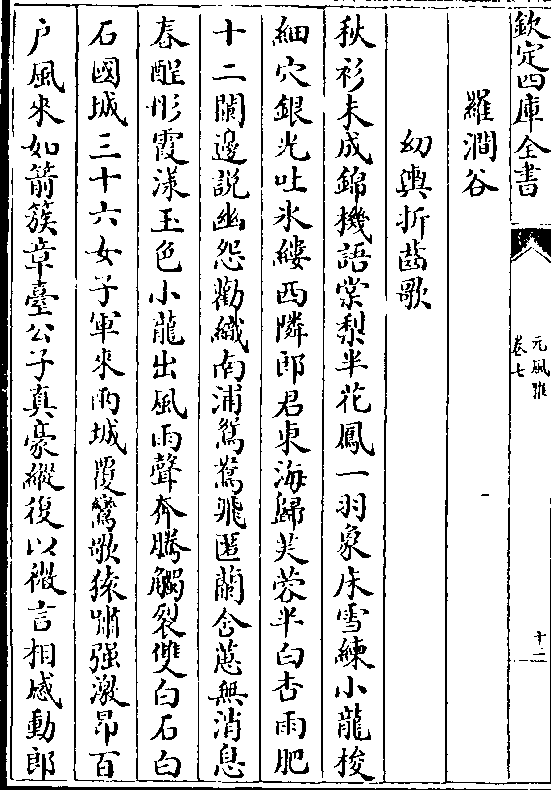 欽定四庫全書
元風雅
卷七
十二
羅澗谷
幼輿折齒歌
秋衫未成錦機語棠梨半花鳳一羽象床雪練小龍梭
細穴銀光吐氷縷西隣郎君東海歸芙蓉半白杏雨肥
十二闌邊説幽怨勸織南浦鴛鴦飛匿蘭含蕙無消息
春酲彤霞漾玉色小龍出風雨聲奔騰觸裂雙白石白
石國城三十六女子軍來兩城覆鸞歌猿嘯强激昂百
户風來如箭簇章臺公子真豪縱復以微言相感動郎